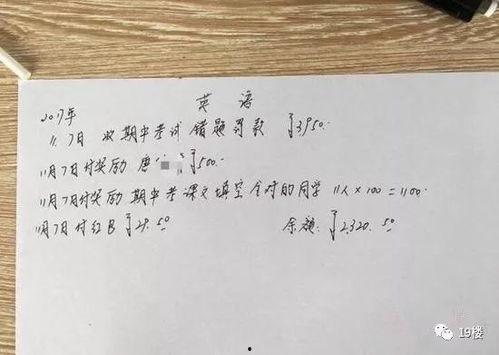 英语
2017年
11.7日 收期中考试错题罚款 ¥3950.
11月7日付奖励 唐 ¥500.
11月7日付奖励期中考课文填空全对的同学 11人×100=1100.
11月7日付红B ¥29.50 余额:¥2320.50
19楼